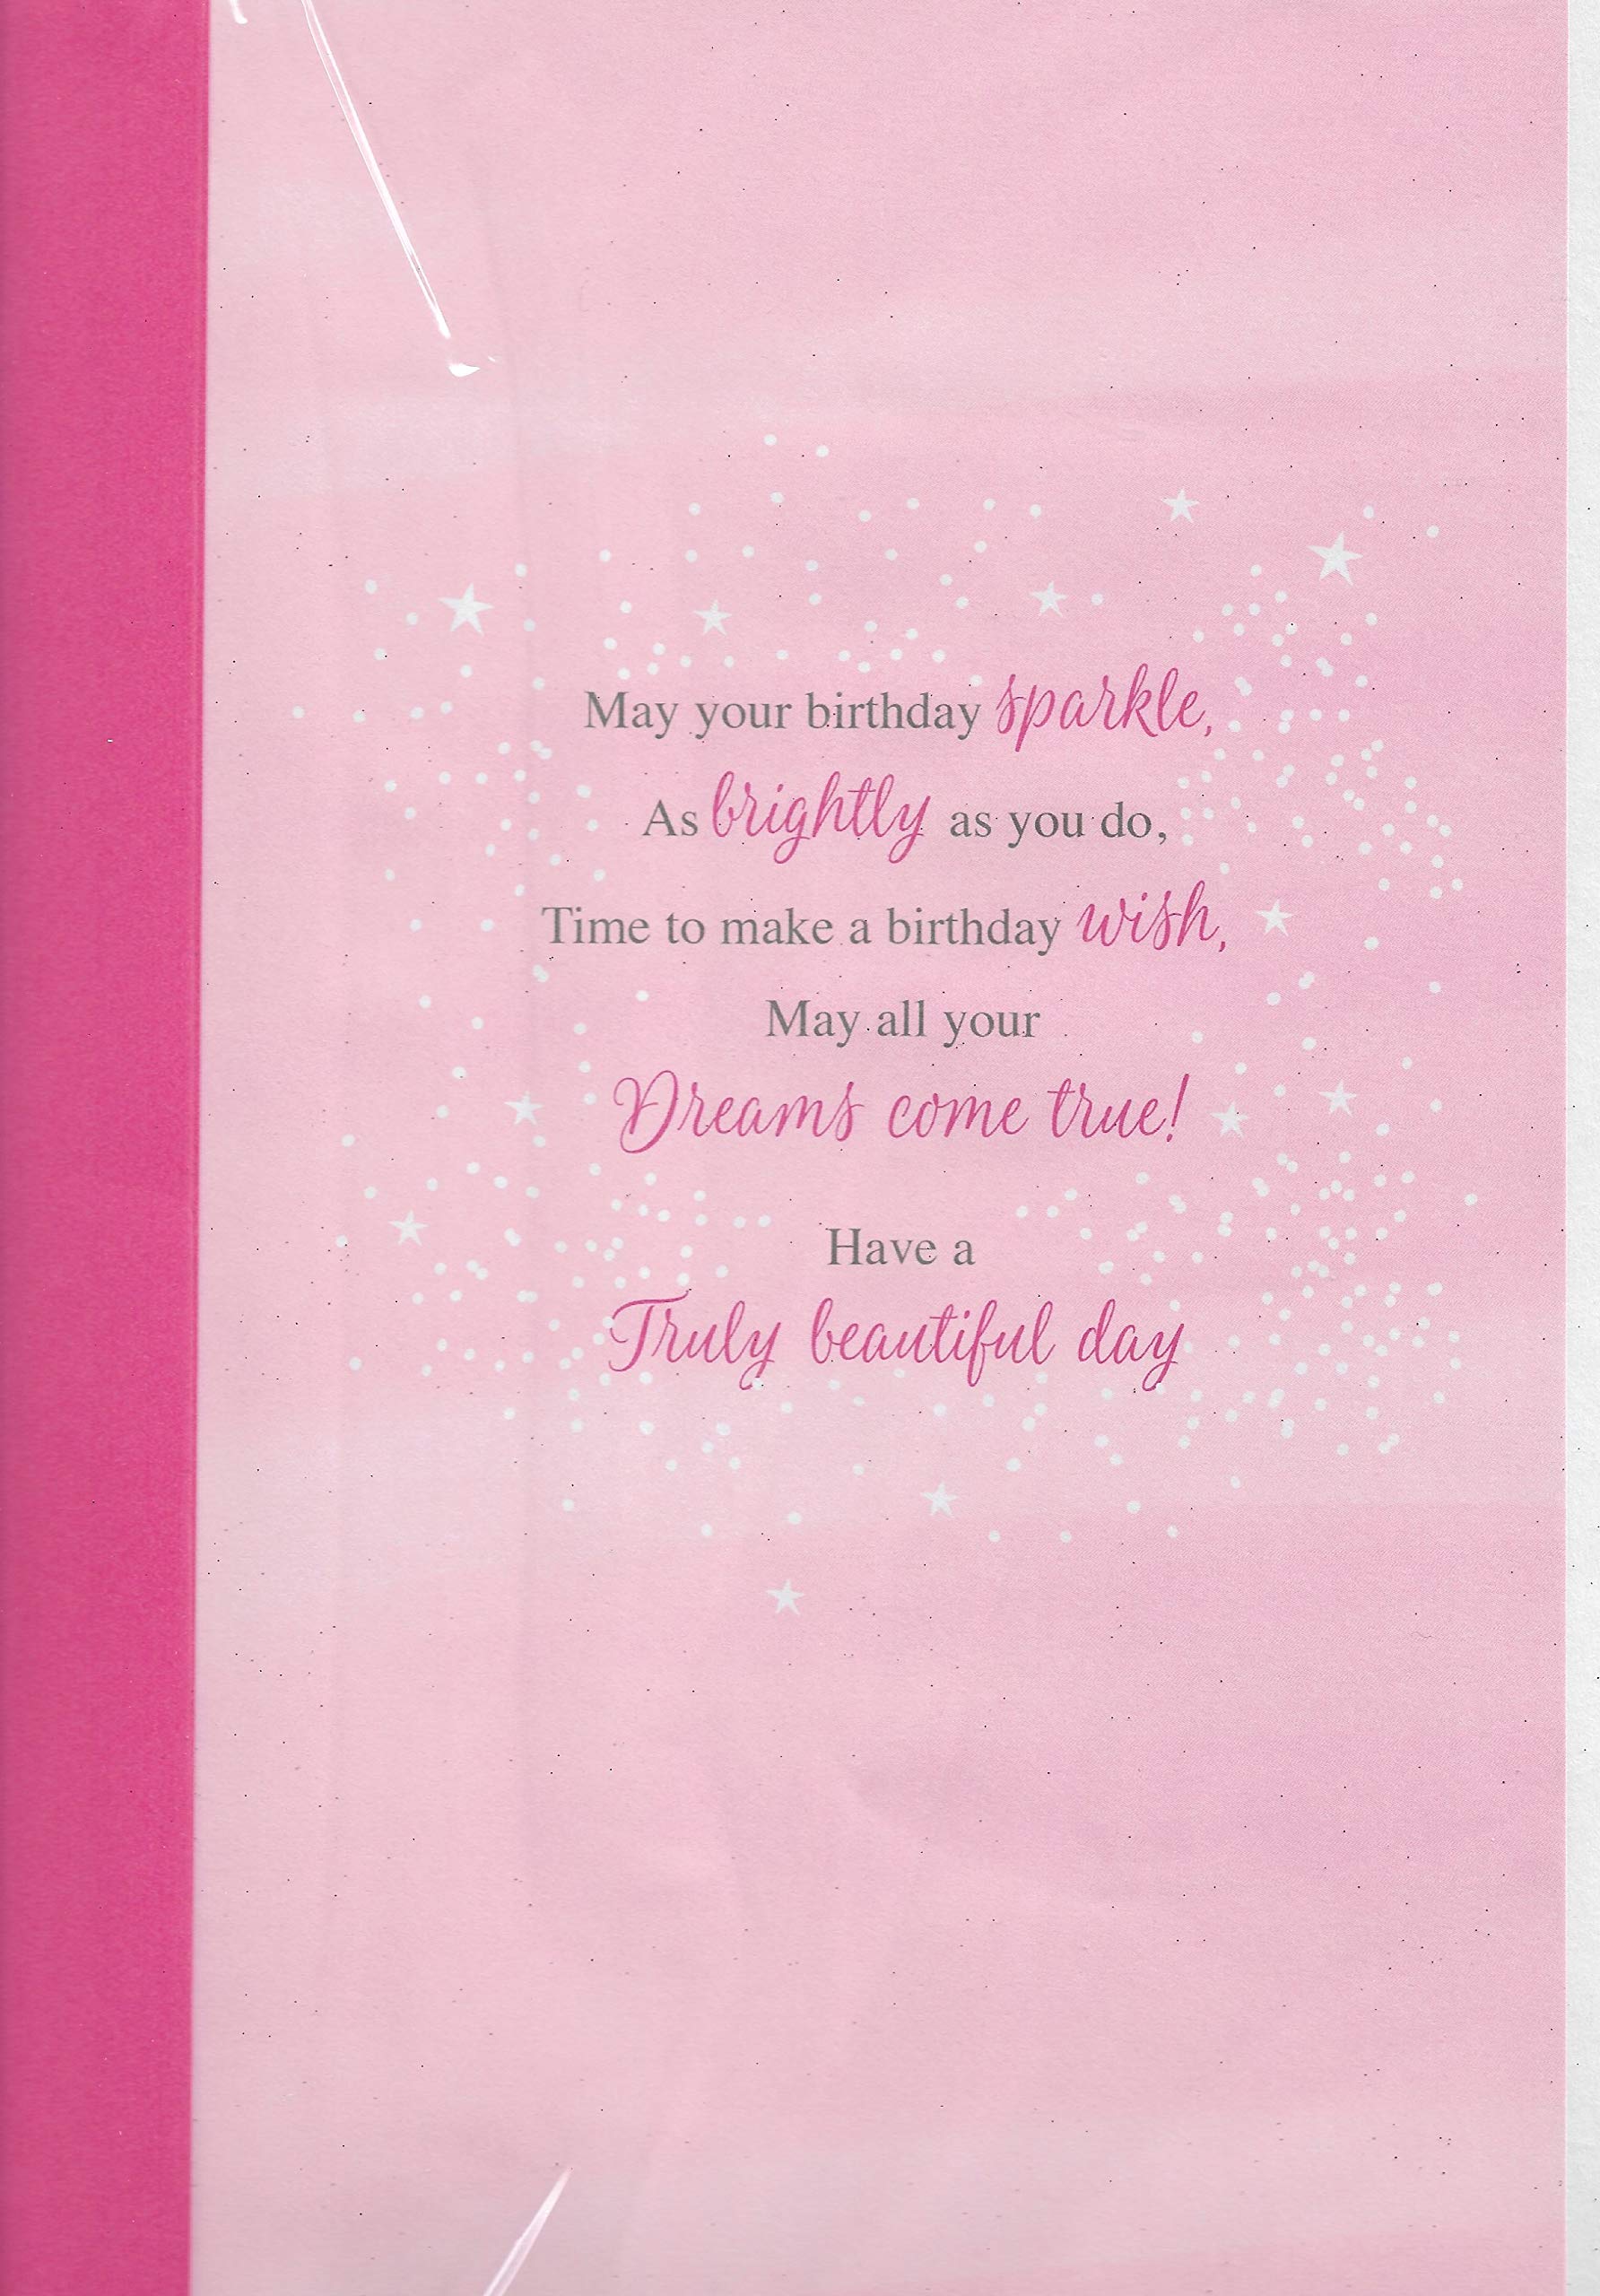 May your birthday sparkle,
As brightly as you do,
Time to make a birthday wish,
May all your
Dreams come true!
Have a
Truly beautiful day